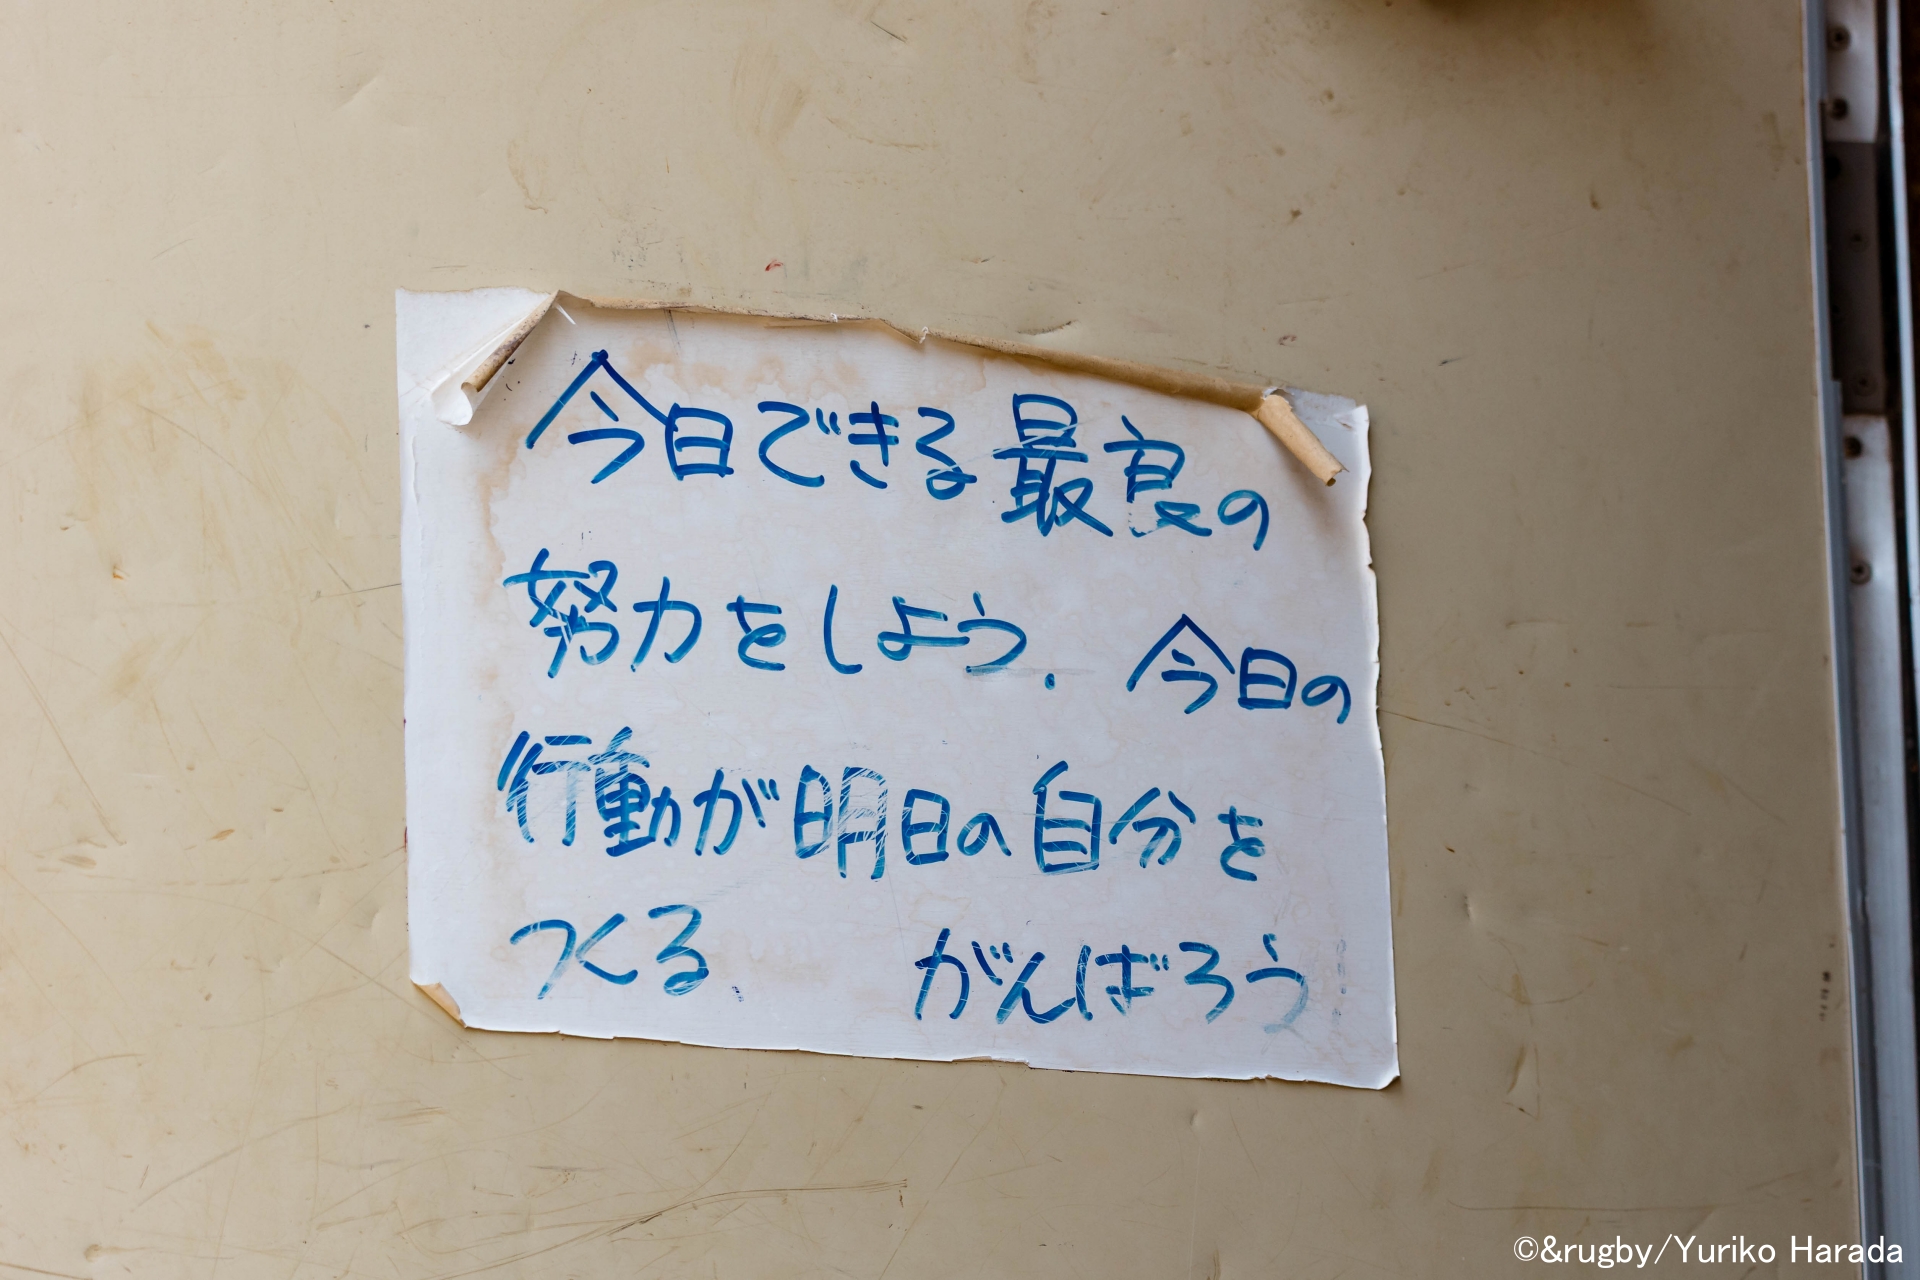 今日できる最良の
努力をしよう. 今日の
行動が明日の自分を
つくる. がんばろう
©&rugby/Yuriko Harada